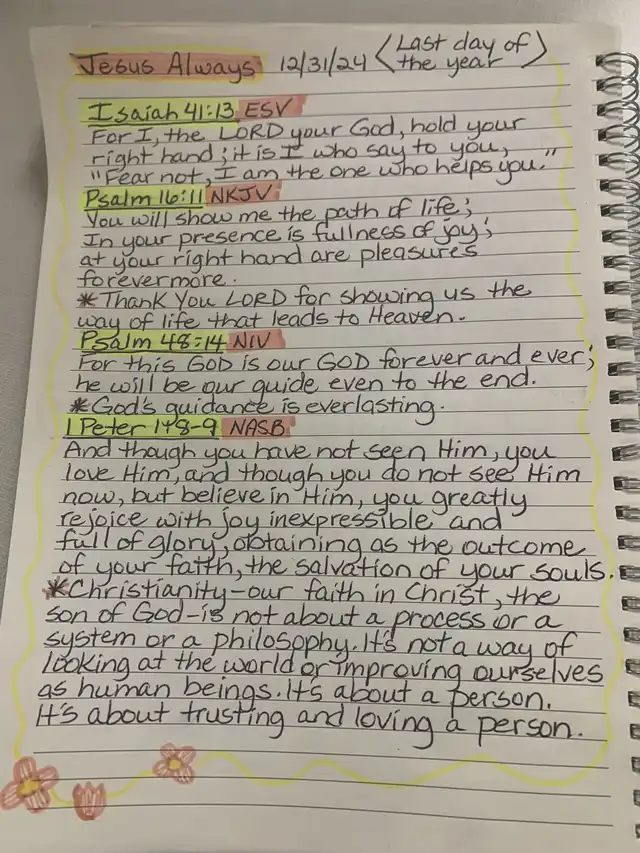 Jesus Always 12/31/24 (Last day of the year)
Isaiah 41:13 ESV
For I, the LORD your God, hold your
right hand; it is I who say to you,
"Fear not, I am the one who helps you."
Psalm 16:11 NKJV
You will show me the path of life;
In your presence is fullness of joy;
at your right hand are pleasures
forevermore.
*Thank You LORD for showing us the
way of life that leads to Heaven.
Psalm 48:14 NIV
For this GOD is our GOD forever and ever;
he will be our guide even to the end.
*God's guidance is everlasting.
1 Peter 1:8-9 NASB
And though you have not seen Him, you
love Him, and though you do not see Him
now, but believe in Him, you greatly
rejoice with joy inexpressible and
full of glory, obtaining as the outcome
of your faith, the salvation of your souls.
*Christianity-our faith in Christ, the
son of God-is not about a process or a
system or a philosophy. It's not a way of
looking at the world or improving ourselves
as human beings. It's about a person.
It's about trusting and loving a person.